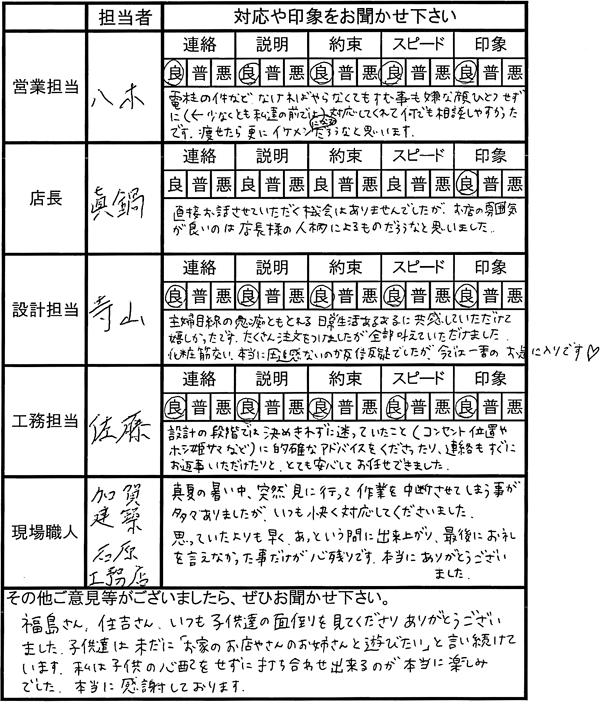 担当者 対応や印象をお聞かせ下さい
営業担当 八木
連絡 説明 約束 スピード 印象
良 普 悪 良 普 悪 良 普 悪 良 普 悪 良 普 悪
電柱の件など、なければやらなくてもすむ事も嫌な顔ひとつせず
に(←少なくとも私達の前では)対応してくれて何でも相談しやすかった
です。渡せたら更にイケメンだろうなと思います。
店長 眞鍋
連絡 説明 約束 スピード 印象
良 普 悪 良 普 悪 良 普 悪 良 普 悪 良 普 悪
直接お話させていただく機会はありませんでしたが、お店の雰囲気
が良いのは店長様の人柄によるものだろうなと思いました。
設計担当 寺山
連絡 説明 約束 スピード 印象
良 普 悪 良 普 悪 良 普 悪 良 普 悪 良 普 悪
主婦目線の愚痴ともとれる日常生活あるあるに共感していただけて
嬉しかったです。たくさん注文をつけましたが全部叶えていただけました。
化粧筋交い、本当に圧迫感ないのか反信反疑でしたが、今では一番のお気に入りです♡
工務担当 佐藤
連絡 説明 約束 スピード 印象
良 普 悪 良 普 悪 良 普 悪 良 普 悪 良 普 悪
設計の段階では決めきれずに迷っていたこと(コンセント位置や
ホシ姫サマなど)に的確なアドバイスをくださったり、連絡もすぐに
お返事いただけたりと、とても安心してお任せできました。
現場職人 加賀建築 石原工務店
真夏の暑い中、突然見に行って作業を中断させてしまう事が
多々ありましたが、いつも快く対応してくださいました。
思っていたよりも早く、あっという間に出来上がり、最後にお礼
を言えなかった事だけが心残りです。本当にありがとうござい
ました。
その他ご意見等がございましたら、ぜひお聞かせ下さい。
福島さん、住吉さん、いつも子供達の面倒を見てくださりありがとうござい
ました。子供達は未だに「お家のお店やさんのお姉さんと遊びたい」と言い続けて
います。私は子供の心配をせずに打ち合わせ出来るのが本当に楽しみ
でした。本当に感謝しております。